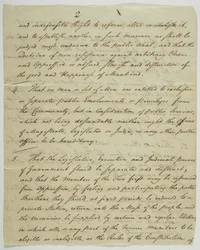 2
and indefeasible Right to reform, alter or abolish it,
and to establish another, in such manner as shall be
judged most conducive to the public weal, and that the
doctrine of non resistance against arbitrary Power
and oppression is absurd, slavish, and destructive of
the good and Happiness of Mankind.
4. That no man or set of Men are entitled to exclusive
or separate public Emoluments or Privileges from
the Community, but in consideration of public services
which not being descendible neither ought the office
of Magistrate, Legislator or Judge, or any other public
officer to be hereditary.
5. That the Legislative, Executive and Judicial powers
of Government should be separate and distinct,
and that the Members of the Two first may be restrained
from oppression by feeling and participating the public
Burthens they should at fixed periods be reduced to a
private station, return
and the vacancies be supplied by certain and regular Elections
in which all or any part of the former members to be
eligible or ineligible as the Rules of the Constitution